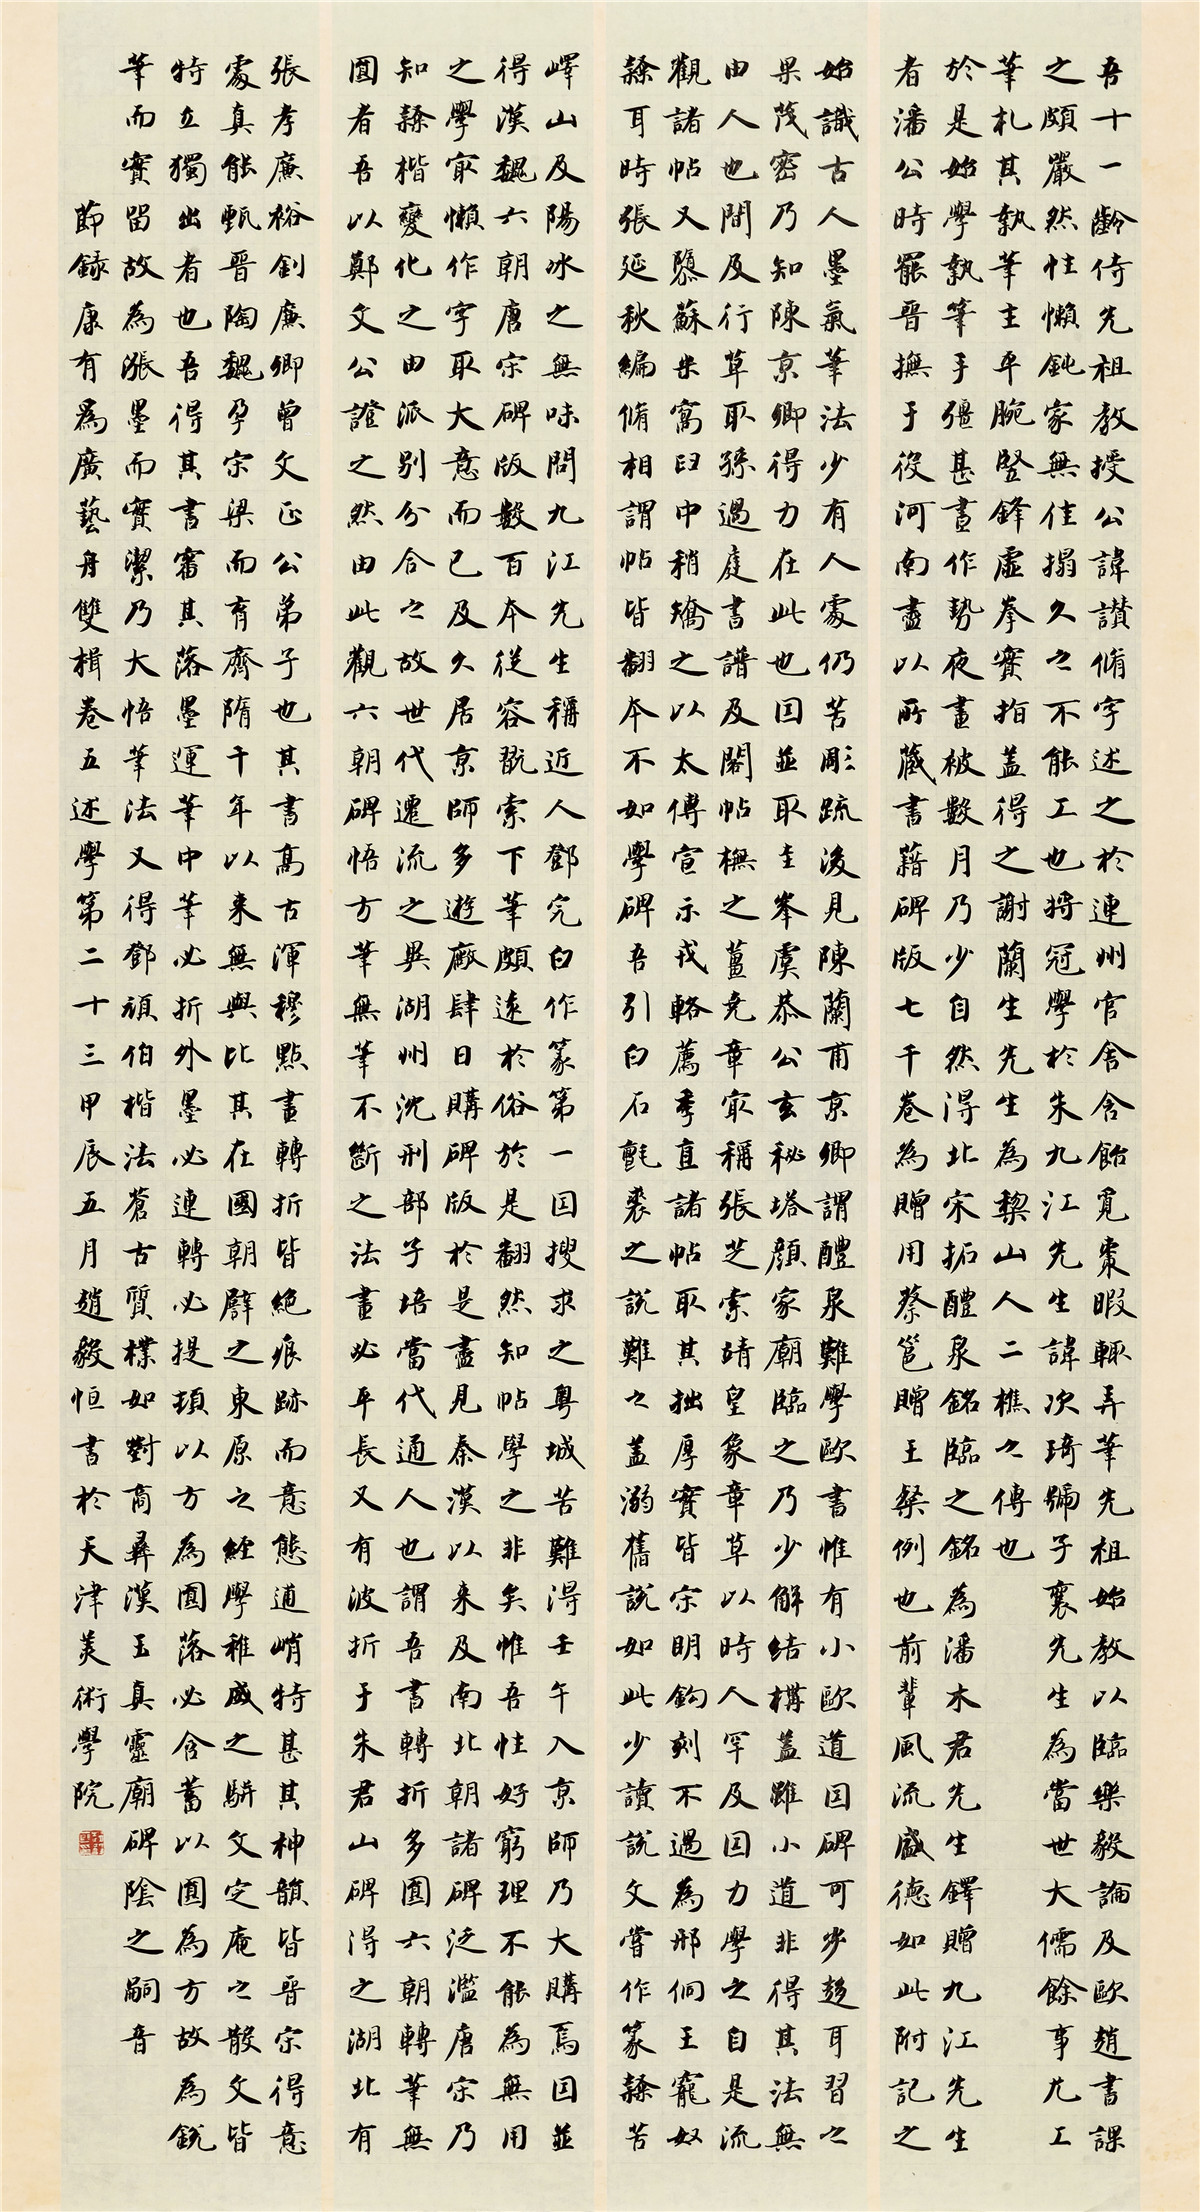 吾十一齡侍先祖教授公諱讚脩字述之於連州官舍含飴覓棗暇輒弄筆先祖始教以臨樂毅論及歐趙書課
之頗嚴然性懶鈍家無佳搨久之不能工也將冠學於朱九江先生諱次琦號子襄先生為當世大儒餘事尤工
筆札其執筆主平腕豎鋒虛拳實指蓋得之謝蘭生先生為犂山人二樵之傳也
於是始學執筆手彊甚晝作勢夜畫被數月乃少自然得北宋拓醴泉銘臨之銘為潘木君先生鐸贈九江先生
者潘公時罷晉撫于役河南盡以所藏書藉碑版七千卷為贈用蔡邕贈王粲例也前輩風流盛德如此附記之
始識古人墨氣筆法少有人處仍苦彫疏後見陳蘭甫京卿謂醴泉難學歐書惟有小歐道因碑可步趨耳習之
果茂密乃知陳京卿得力在此也因並取圭峯虞恭公玄秘塔顏家廟臨之乃少解結構蓋雖小道非得其法無
由人也間及行草取孫過庭書譜及閣帖橅之薑尭章冣稱張芝索靖皇象章草以時人罕及因力學之自是流
觀諸帖又隳蘇米窩臼中稍矯之以太傅宣示戎輅薦季直諸帖取其拙厚實皆宗明鈎刻不過為邢侗王寵奴
隸耳時張延秋編脩相謂帖皆翻本不如學碑吾引白石氈裘之說難之蓋溺舊說如此少讀說文嘗作篆隸苦
嶧山及陽冰之無味問九江先生稱近人鄧完白作篆第一因搜求之粵城苦難得壬午入京師乃大購焉因並
得漢魏六朝唐宋碑版數百本從容翫索下筆頗遠於俗於是翻然知帖學之非矣惟吾性好窮理不能為無用
之學冣懶作字取大意而已及久居京師多遊廠肆日購碑版於是盡見秦漢以來及南北朝諸碑泛濫唐宋乃
知隸楷變化之由派別分合之故世代遷流之異湖州沈刑部子培當代通人也謂吾書轉折多圓六朝轉筆無
圓者吾以鄭文公證之然由此觀六朝碑悟方筆無筆不斷之法畫必平長又有波折于朱君山碑得之湖北有
張孝廉裕釗廉卿曾文正公弟子也其書高古渾穆點畫轉折皆絕痕跡而意態逋峭特甚其神韻皆晋宋得意
處真能甄晉陶魏孕宋梁而育齊隋千年以來無與比其在國朝譬之東原之經學稚威之駢文定庵之散文皆
特立獨出者也吾得其書審其落墨運筆中筆必折外墨必連轉必提頓以方為圓落必含蓄以圓為方故為銳
筆而實留故為漲墨而實潔乃大悟筆法又得鄧頑伯楷法蒼古質樸如對商彝漢玉真靈廟碑陰之嗣音
節錄康有爲廣藝舟雙楫卷五述學第二十三甲辰五月趙毅恒書於天津美術學院